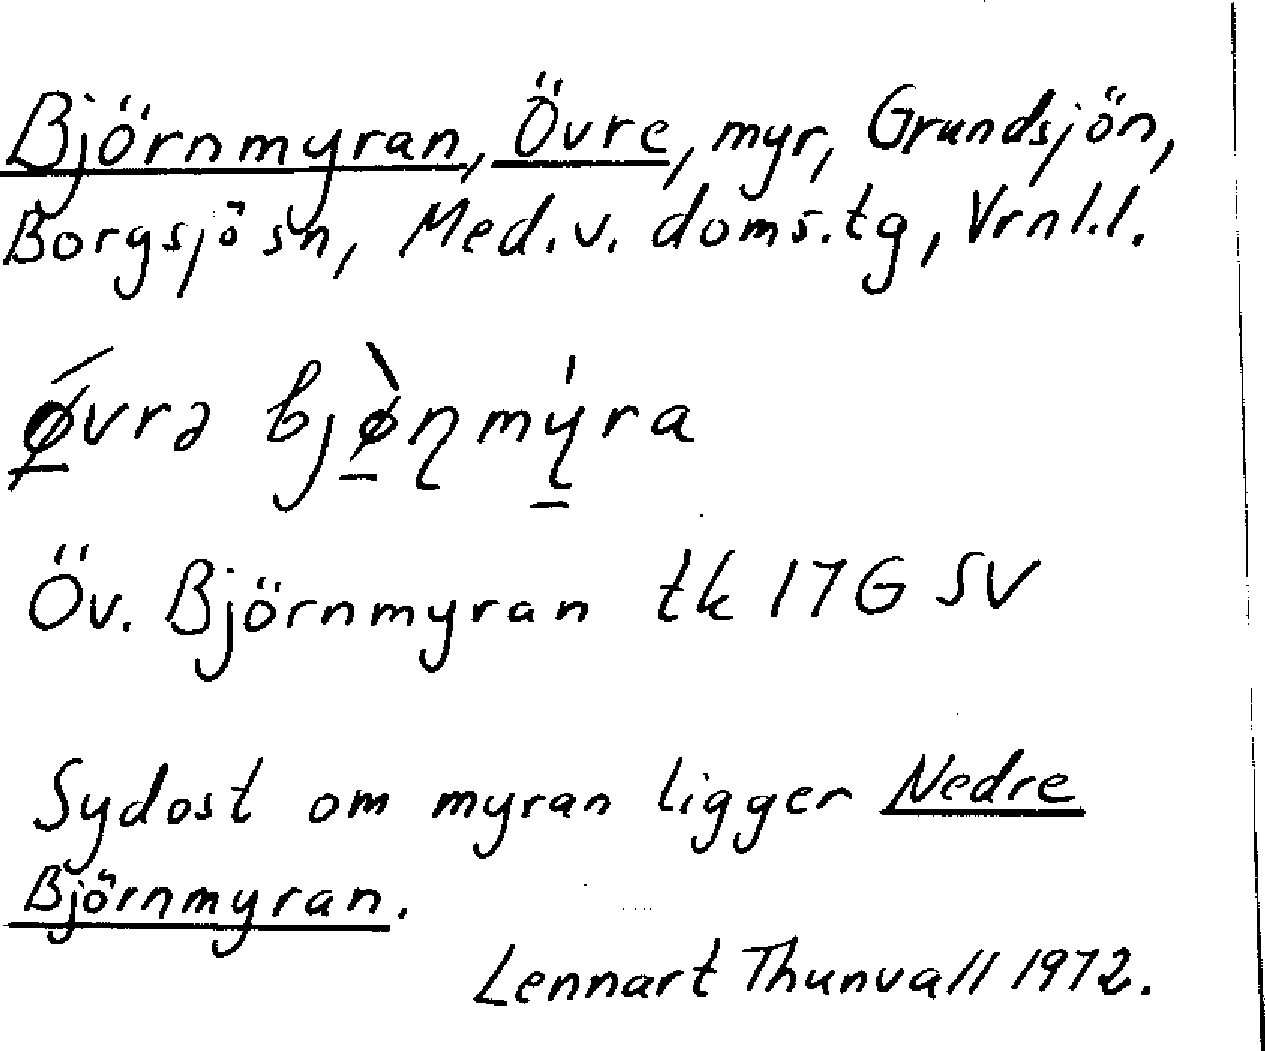 Björnmyran, Övre, myr, Grundsjön,
Borgsjö sn, Med. v. doms. tg, Vrnl. l.
ǿ̱vrə bjø̱̀ɳmý̱ra
Öv. Björnmyran tk 17G SV
Sydost om myran ligger Nedre
Björnmyran.
Lennart Thunvall 1972.